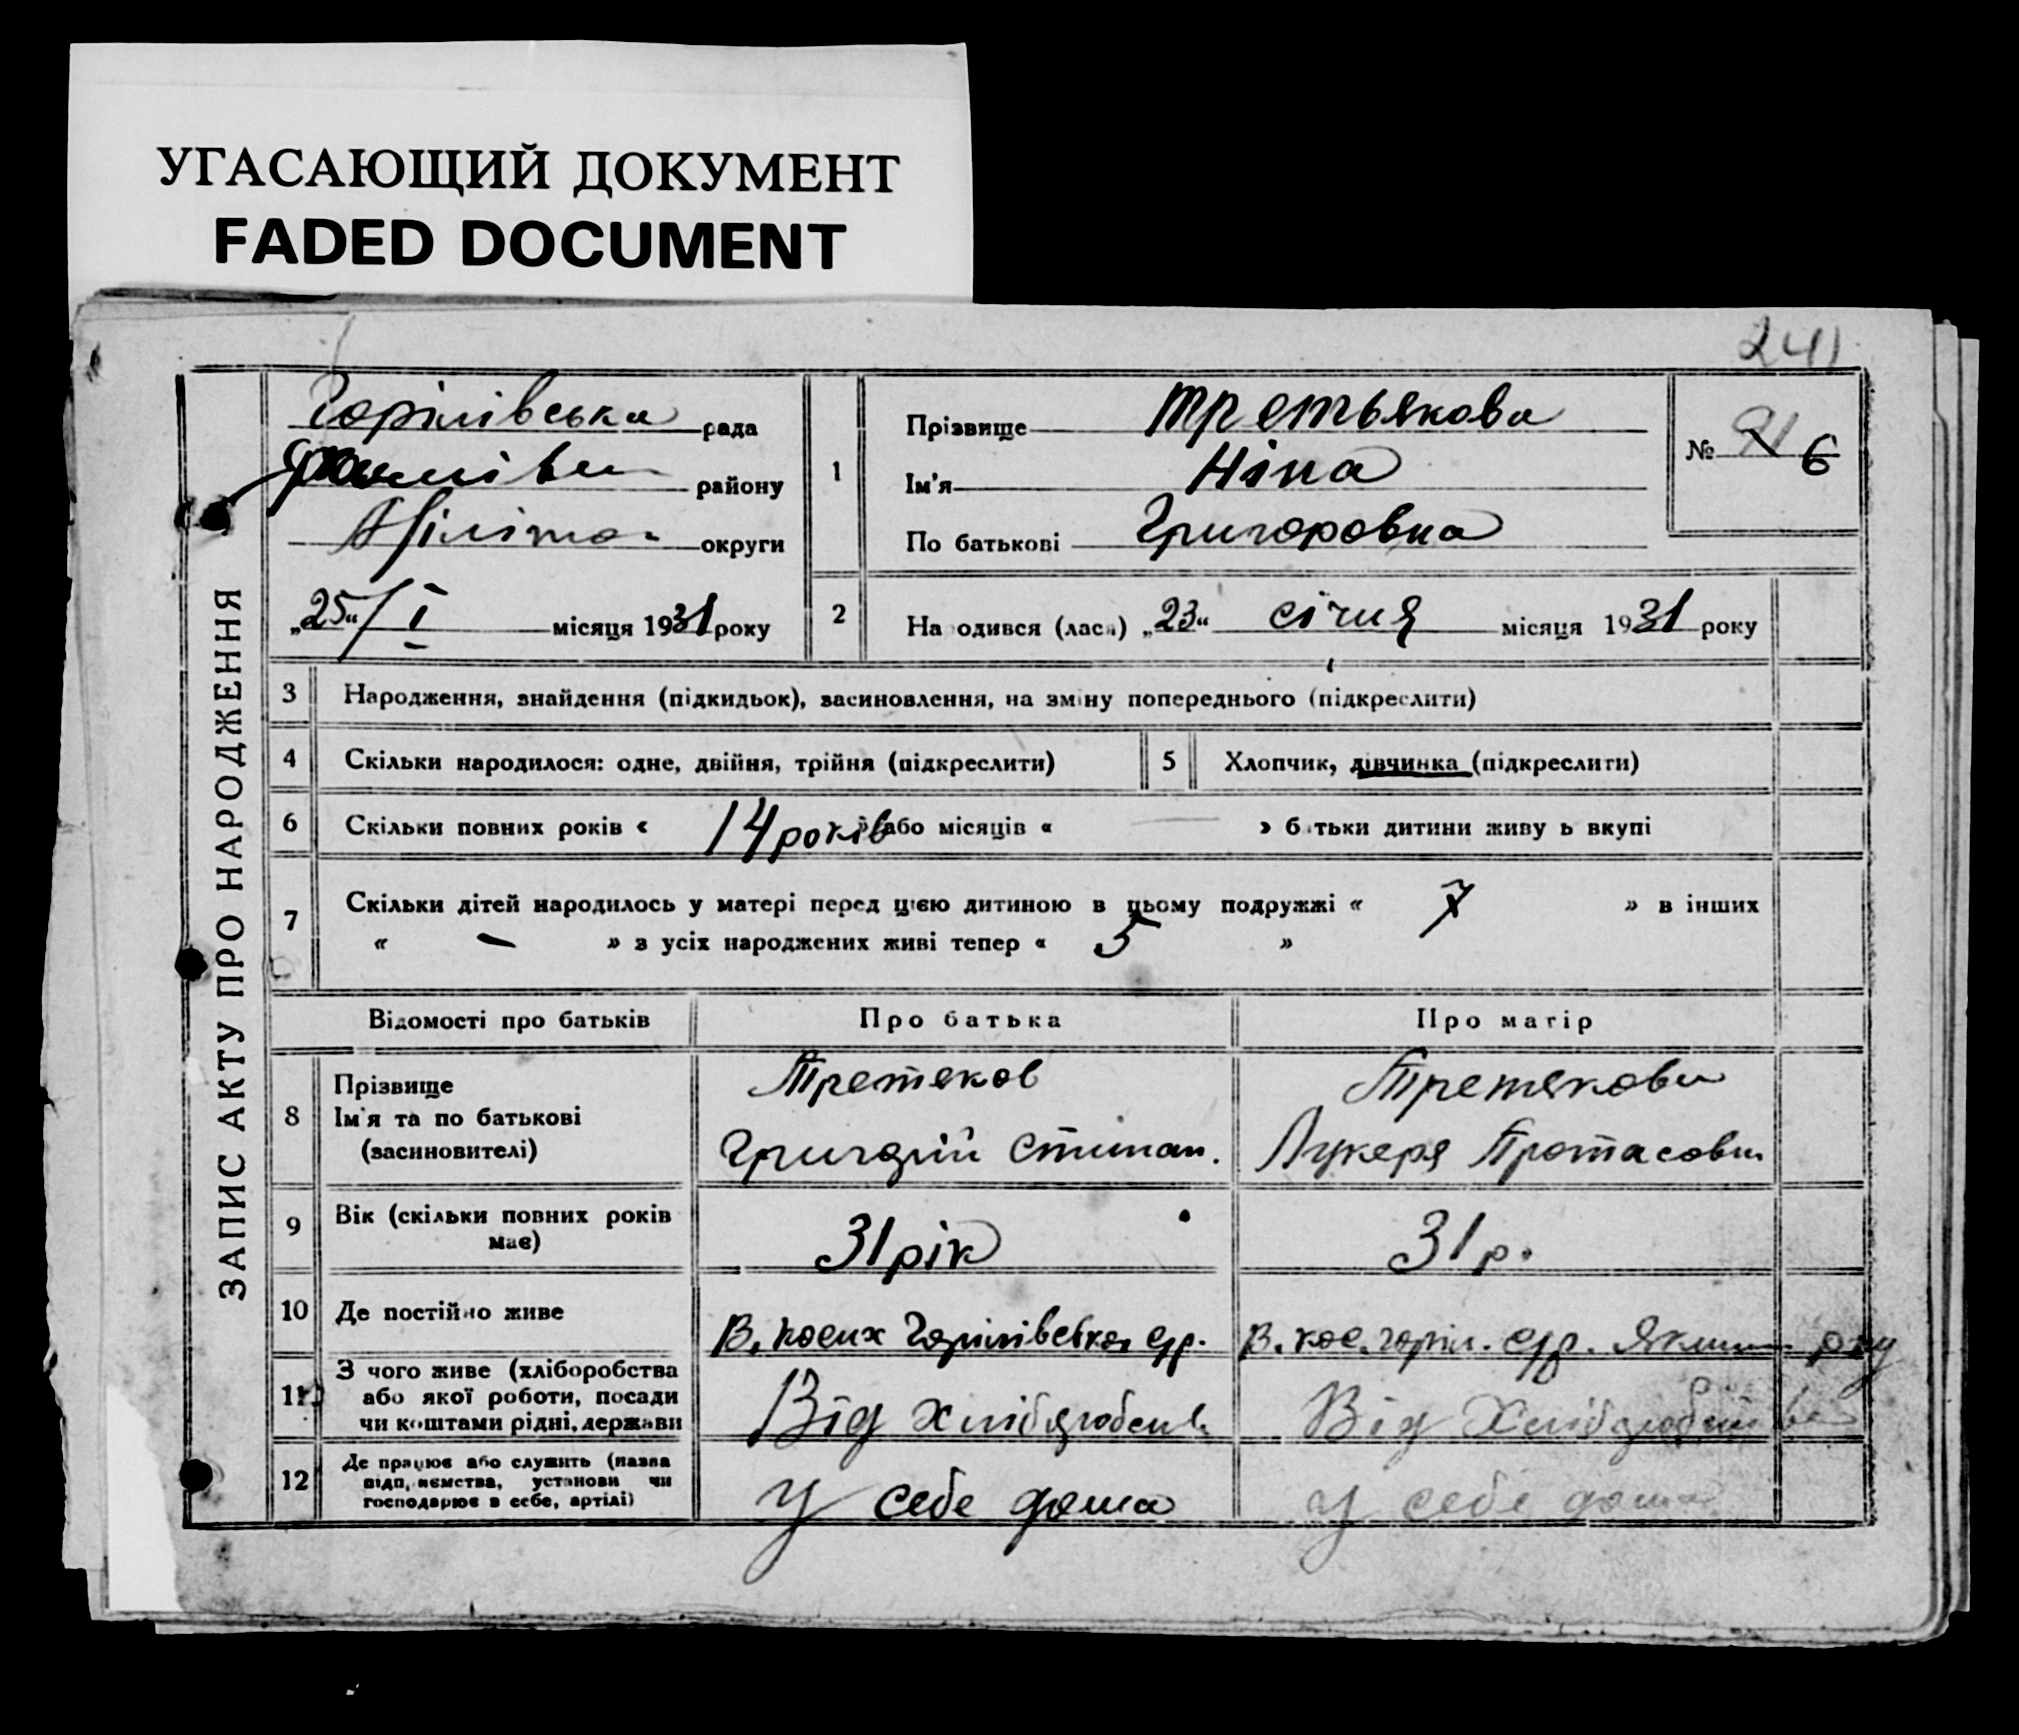 УГАСАЮЩИЙ ДОКУМЕНТ
FADED DOCUMENT
241
ЗАПИС АКТУ ПРО НАРОДЖЕННЯ
Горілівська рада
району
округи
„25“ / I місяця 1931 року
1
Прізвище Третьякова
Ім'я Ніна
По батькові Григоровна
№ 6
2
На одився (лася) „23“ січня місяця 1931 року
3 Народження, знайдення (підкидьок), васиновлення, на зміну попереднього (підкреслити)
4 Скільки народилося: одне, двійня, трійня (підкреслити)
5 Хлопчик, дівчинка (підкреслити)
6 Скільки повних років « 14 років » або місяців « — » батьки дитини живуть вкупі
7 Скільки дітей народилось у матері перед цією дитиною в цьому подружжі « 7 » в інших
« — » з усіх народжених живі тепер « 5 »
Відомості про батьків Про батька Про матір
8
Прізвище
Ім'я та по батькові
(засиновителі)
Третяков
Григорій Степан.
Третякова
Лукеря Протасовн
9 Вік (скільки повних років
має)
31 рік
31 р.
10 Де постійно живе
В. Горілівської с/р.
В. горіл. с/р.
11
З чого живе (хліборобства
або якої роботи, посади
чи коштами рідні, держави
Від
Від
12
Де працює або служить (назва
підприємства, установи чи
господарює в себе, артілі)
у себе дома
у себе дома